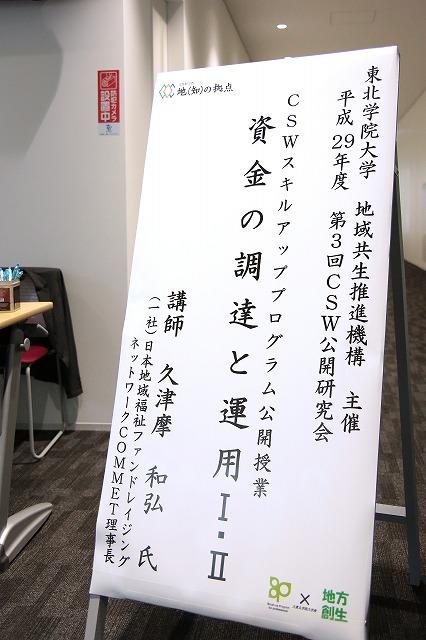 地(知)の拠点
東北学院大学 地域共生推進機構 主催
平成29年度 第3回CSW公開研究会
CSWスキルアッププログラム公開授業
資金の調達と運用Ⅰ・Ⅱ
講師 久津摩 和弘 氏
(一社)日本地域福祉ファンドレイジング
ネットワークCOMMET理事長
×
地方
創生
防犯カメラ
設置中